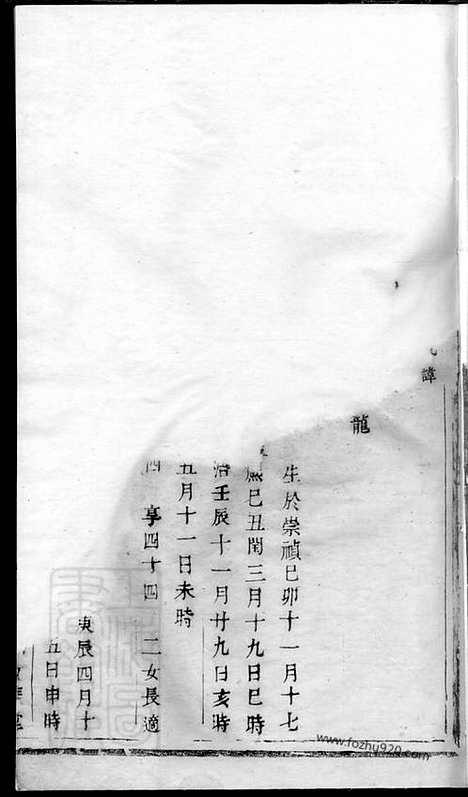 諱
龍
生於崇禎己卯十一月十七
熈己丑閏三月十九日巳時
治壬辰十一月廿九日亥時
五月十一日未時
四 享四十四 二女長適
庚辰四月十
五日申時
www.fozhu920.com